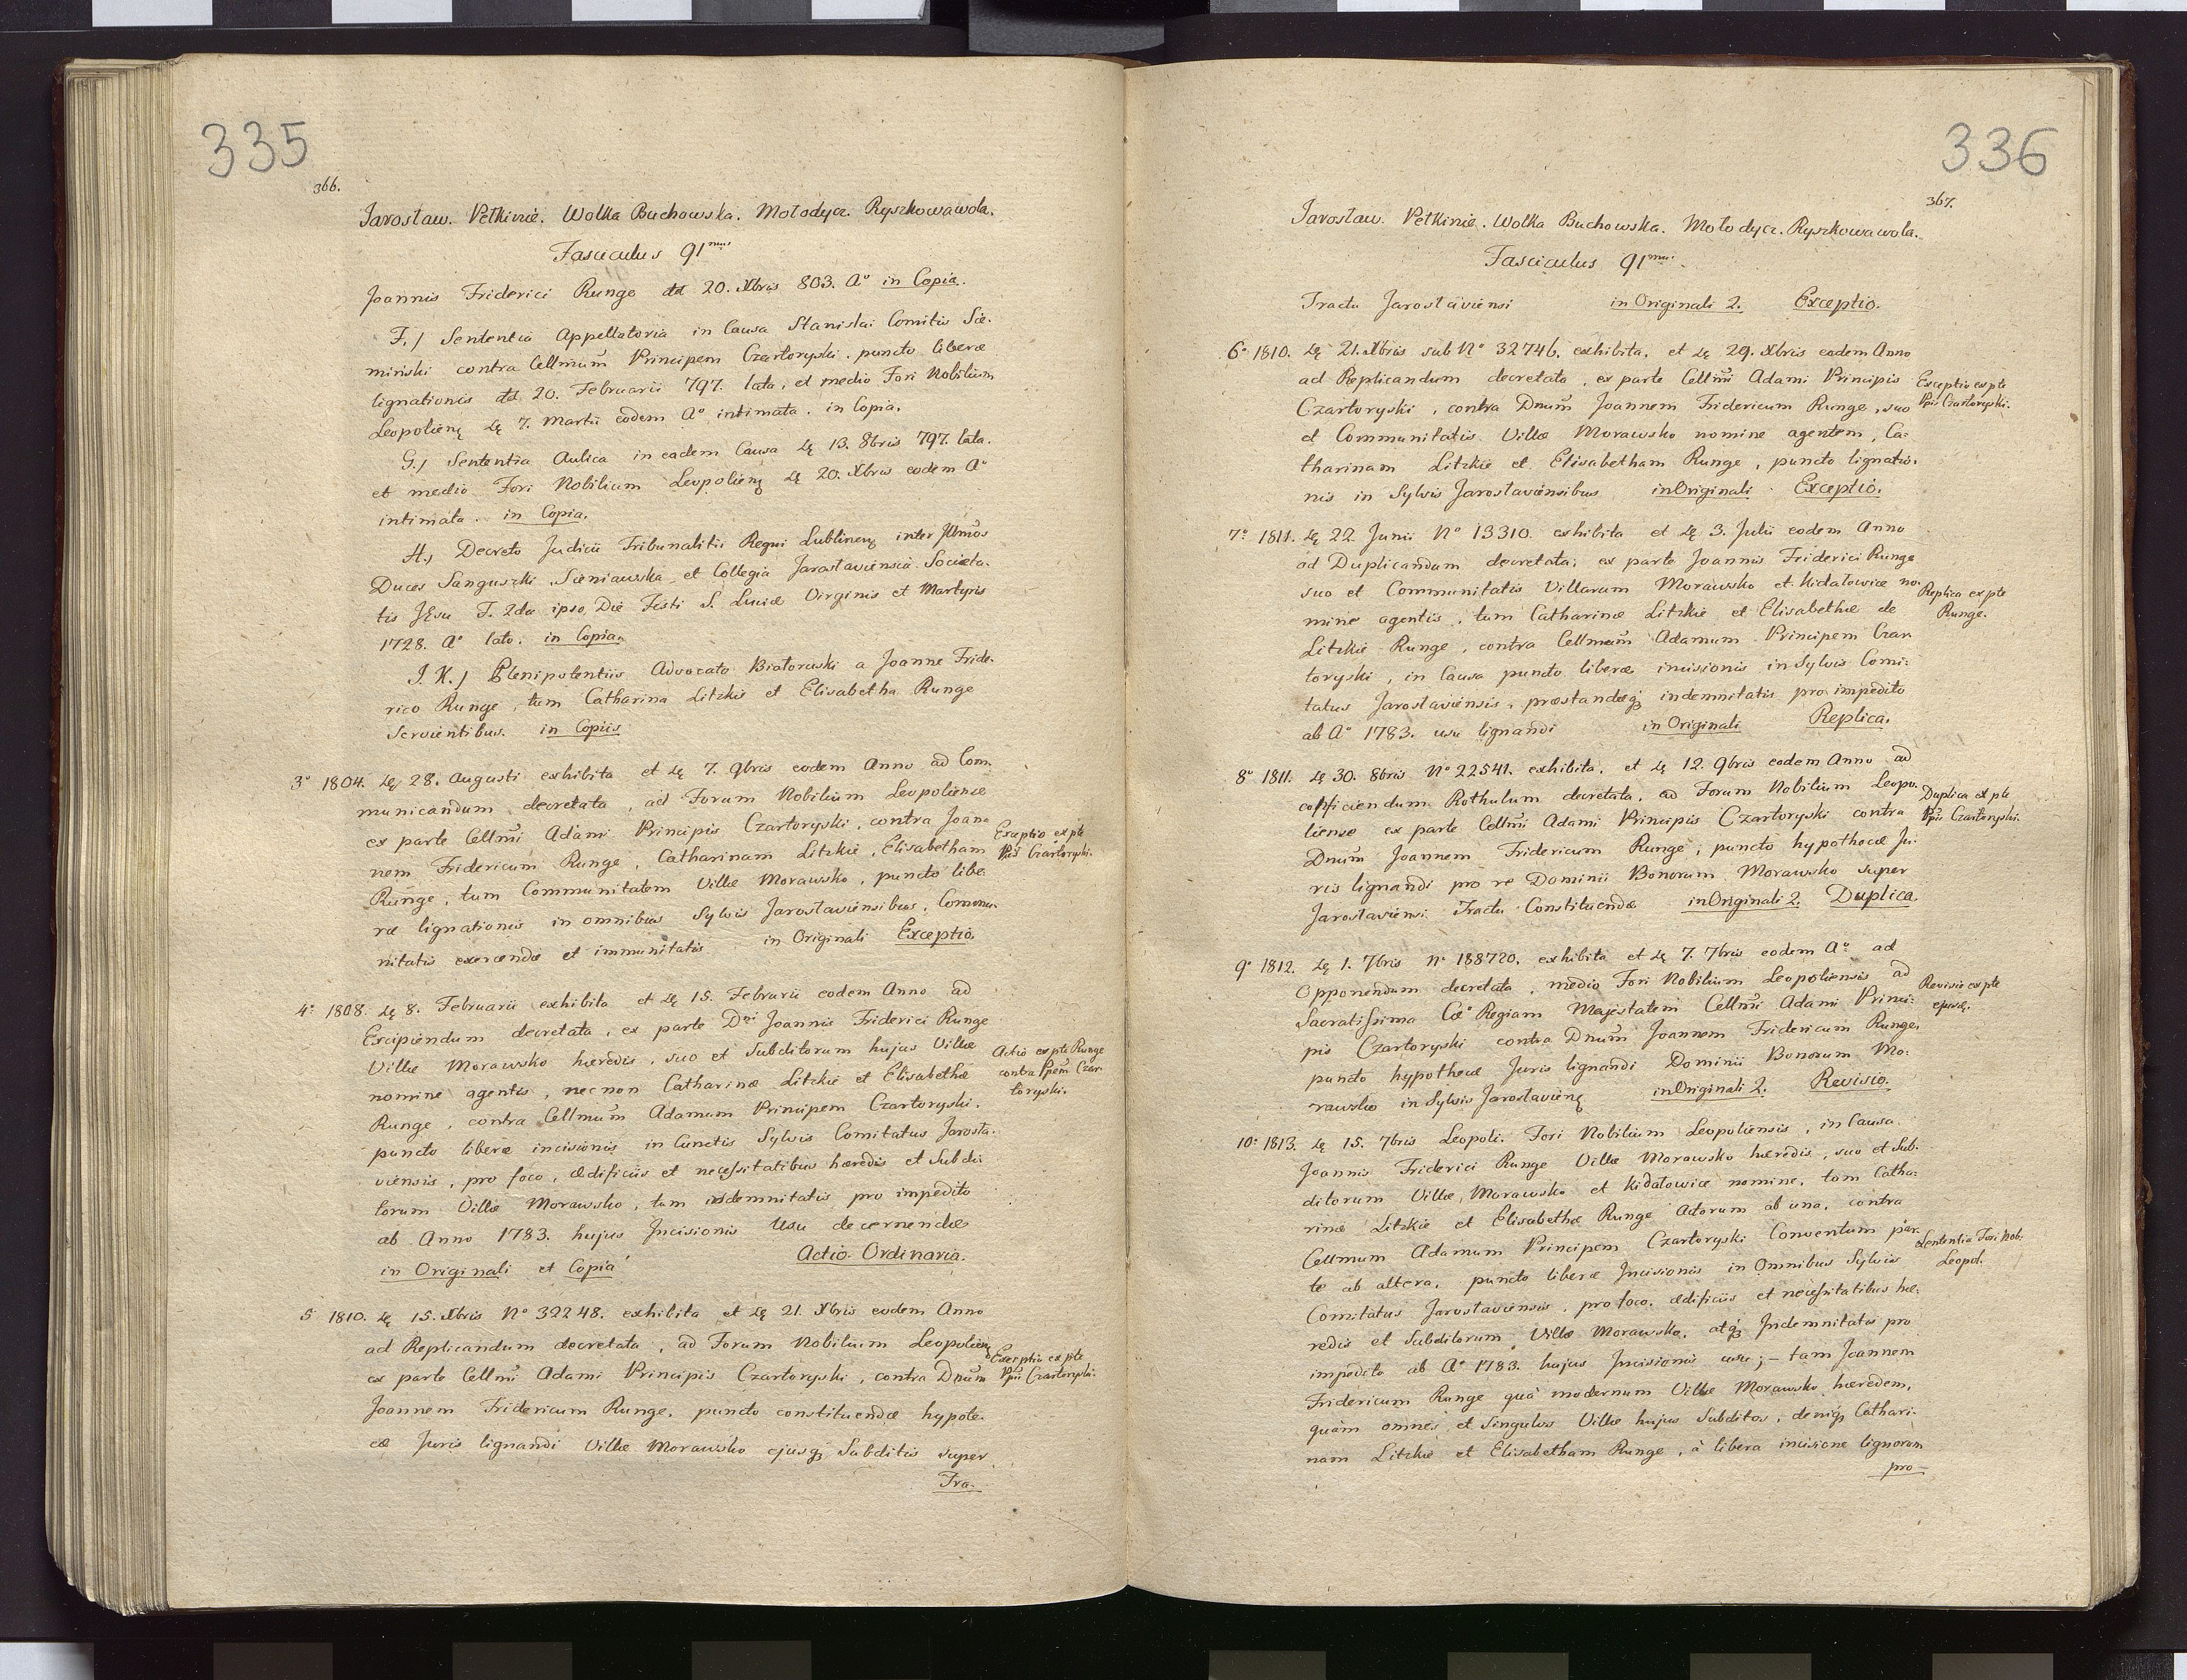 335
366.
Jarosław. Pełkinie. Wolka Buchowska. Mołodycz. Ryszkowawola.
Fasciculus 91mus
Joannis Friderici Runge dd 20. Xbris 803. Ao in Copia.
F.) Sententia Appellatoria in Causa Stanislai Comitis Sie-
miński contra Cellmum Principem Czartoryski. puncto liberæ
lignationis dd 20. Februarii 797. lata, et medio Fori Nobilium
Leopolieną dę 7. Martii eodem Ao intimata. in Copia.
G.) Sententia Aulica in eadem Causa dę 13. 8bris 797. lata.
et medio Fori Nobilium Leopolieną dę 20. Xbris eodem Ao
intimata. in Copia.
H.) Decreto Judicii Tribunalitii Regni Lublineną inter Illmos
Duces Sanguszki, Sieniawska et Collegia Jaroslaviensia Societa-
tis JEsu F. 2da ipso Die Festi S. Luciæ Virginis et Martyris
1728. Ao lato. in Copia.
I. K.) Plenipotentiis Advocato Białoruski a Joanne Fride-
rico Runge, tum Catharina Litzkie et Elisabetha Runge
Servientibus. in Copiis
3o 1804. dę 28. Augusti exhibita et dę 7. 9bris eodem Anno ad Com-
municandum decretata, ad Forum Nobilium Leopoliense
ex parte Cellmi Adami Principis Czartoryski, contra Joan-
nem Fridericum Runge, Catharinam Litzkie, Elisabetham
Runge, tum Communitatem Villæ Morawsko, puncto libe-
ræ lignationis in omnibus Sylvis Jaroslaviensibus, Commu-
nitatis exercendæ et immunitatis in Originali Exceptio.
Exceptio ex pte
Ppis Czartoryski.
4o 1808. dę 8. Februarii exhibita et dę 15. Februarii eodem Anno ad
Excipiendum decretata, ex parte Dni Joannis Friderici Runge
Villæ Morawsko hæredis, suo et Subditorum hujus Villæ
nomine agentis, necnon Catharinæ Litzkie et Elisabethæ
Runge, contra Cellmum Adamum Principem Czartoryski,
puncto liberæ incisionis in Cunctis Sylvis Comitatus Jarosla-
viensis, pro foco, ædificiis et necessitatibus hæredis et Subdi-
torum Villæ Morawsko, tum indemnitatis pro impedito
ab Anno 1783. hujus Incisionis Usu decernendæ
in Originali et Copia Actio Ordinaria.
Actio ex pte Runge
contra Ppem Czar-
toryski.
5 1810. dę 15. Xbris No 32248. exhibita et dę 21. Xbris eodem Anno
ad Replicandum decretata, ad Forum Nobilium Leopolieną
ex parte Cellmi Adami Principis Czartoryski, contra Dnum
Joannem Fridericum Runge, puncto constituendæ hypote-
cæ Juris lignandi Villæ Morawsko ejusqз Subditis super
Tra-
Exceptio ex pte
Ppis Czartoryski.
336
367.
Jarosław. Pełkinie. Wolka Buchowska. Mołodycz. Ryszkowawola.
Fasciculus 91mus
Tractu Jaroslaviensi in Originali 2. Exceptio.
6o 1810. dę 21. Xbris sub No 32746. exhibita, et dę 29. Xbris eodem Anno
ad Replicandum decretata, ex parte Cellmi Adami Principis
Czartoryski, contra Dnum Joannem Fridericum Runge, suo
et Communitatis Villæ Morawsko nomine agentem, Ca-
tharinam Litzkie et Elisabetham Runge, puncto lignatio-
nis in Sylvis Jaroslaviensibus in Originali Exceptio.
Exceptio ex pte
Ppis Czartoryski.
7o 1811. dę 22 Junii No 13310. exhibita et dę 3. Julii eodem Anno
ad Duplicandum decretata, ex parte Joannis Friderici Runge
suo et Communitatis Villarum Morawsko et Kidałowice no-
mine agentis, tum Catharinæ Litzkie et Elisabethæ de
Litzkie Runge, contra Cellmum Adamum Principem Czar-
toryski, in Causa puncto liberæ incisionis in Sylvis Comi-
tatus Jaroslaviensis, præstandæqз indemnitatis pro impedito
ab Ao 1783. usu lignandi in Originali Replica.
Replica ex pte
Runge.
8o 1811. dę 30. 8bris No 22541. exhibita, et dę 12. 9bris eodem Anno ad
conficiendum Rothulum decretata, ad Forum Nobilium Leopo-
liense ex parte Cellmi Adami Principis Czartoryski contra
Dnum Joannem Fridericum Runge, puncto hypothecæ Ju-
ris lignandi pro re Dominii Bonorum Morawsko super
Jaroslaviensi Tractu Constituendæ in Originali 2. Duplica.
Duplica ex pte
Ppis Czartoryski.
9o 1812. dę 1. 7bris No 188720. exhibita et dę 7. 7bris eodem Ao ad
Opponendum decretata, medio Fori Nobilium Leopoliensis ad
Sacratissimam Cæo Regiam Majestatem Cellmi Adami Princi-
pis Czartoryski contra Dnum Joannem Fridericum Runge,
puncto hypothecæ Juris lignandi Dominii Bonorum Mo-
rawsko in Sylvis Jaroslavieną in Originali 2. Revisio.
Revisio ex pte
ejusdę.
10o 1813. dę 15. 7bris Leopoli. Fori Nobilium Leopoliensis, in Causa
Joannis Friderici Runge Villæ Morawsko hæredis, suo et Sub-
ditorum Villæ Morawsko et Kidałowice nomine, tum Catha-
rinæ Litzkie et Elisabethæ Runge Actorum ab una, contra
Cellmum Adamum Principem Czartoryski Conventum par-
te ab altera, puncto liberæ Incisionis in Omnibus Sylvis
Comitatus Jaroslaviensis, pro foco, ædificiis et necessitatibus hæ-
redis et Subditorum Villæ Morawsko, atqз Indemnitatis pro
impedito ab Ao 1783. hujus Incisionis usu; – tam Joannem
Fridericum Runge quà modernum Villæ Morawsko hæredem,
quàm omnes et Singulos Villæ hujus Subditos, deniqз Cathari-
nam Litzkie et Elisabetham Runge, à libera incisione lignorum
pro-
Sententia Fori Nob.
Leopol.